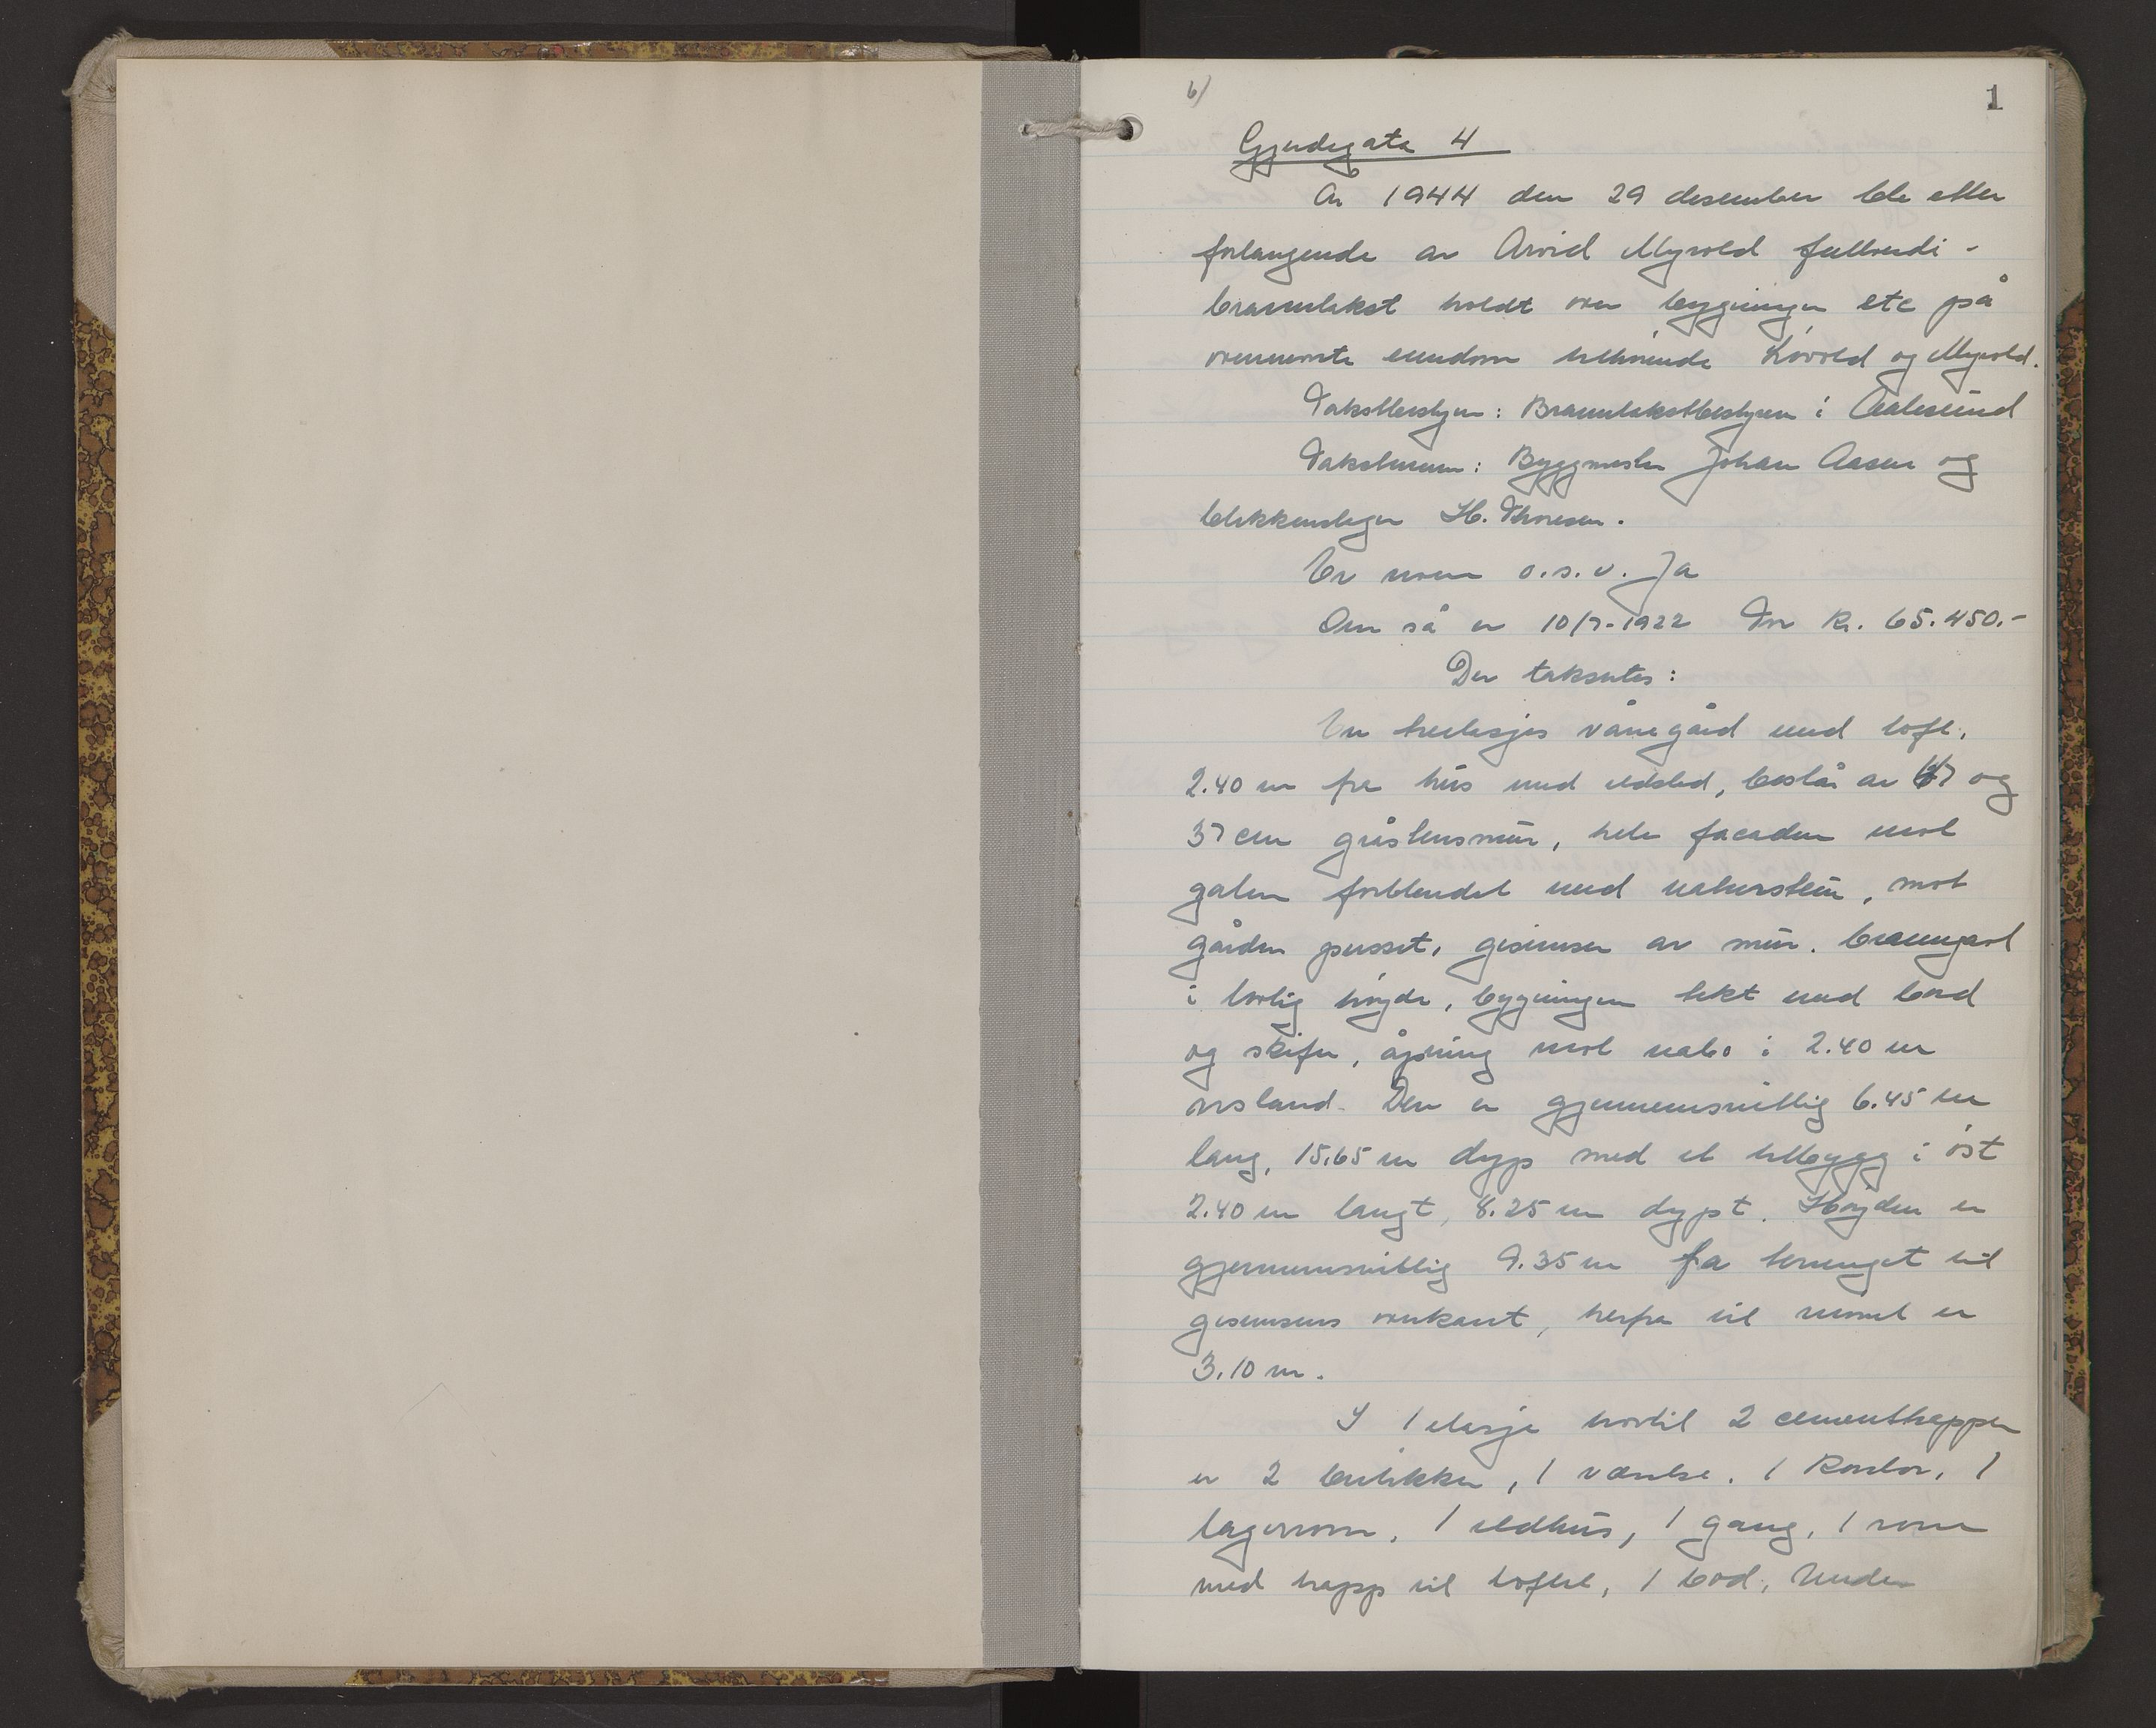 6)
1
Gjerdegata 4
År 1944 den 29 desember ble etter
forlangende av Arvid Myrold fullverdi-
branntakst holdt over bygninger etc på
ovennevnte eiendom tilhørende Løvold og Myrold.
Takstbestyrer: Branntakstbestyreren i Aalesund
Takstmenn: Byggmester Johan Aasen og
blikkenslager H. Thoresen.
Er noen o.s.v. Ja
Om så er 10/7-1922 For kr. 65.450.-
Der taksertes:
En treetasjes våningård med loft,
2.40 m fra hus med ildsted, består av 47 og
37 cm gråstensmur, hele facaden mot
gaten forblendet med naturstein, mot
gården pusset, gesimser av mur. branngavl
i lovlig høyde, bygningen tekt med bord
og skifer, åpning mot nabo i 2.40 m
avstand. Den er gjennemsnittlig 6.45 m
lang, 15.65 m dyp med et tilbygg i øst
2.40 m langt, 8.25 m dypt. Høyden er
gjennemsnittlig 9.35 m fra terrenget til
gesimsens overkant, herfra til mønet er
3.10 m.
I 1 etasje hvortil 2 cementtrapper
er 2 butikker, 1 værelse. 1 kontor, 1
lagerrom, 1 ildhus, 1 gang, 1 rom
med trapp til loftet, 1 bod, Under